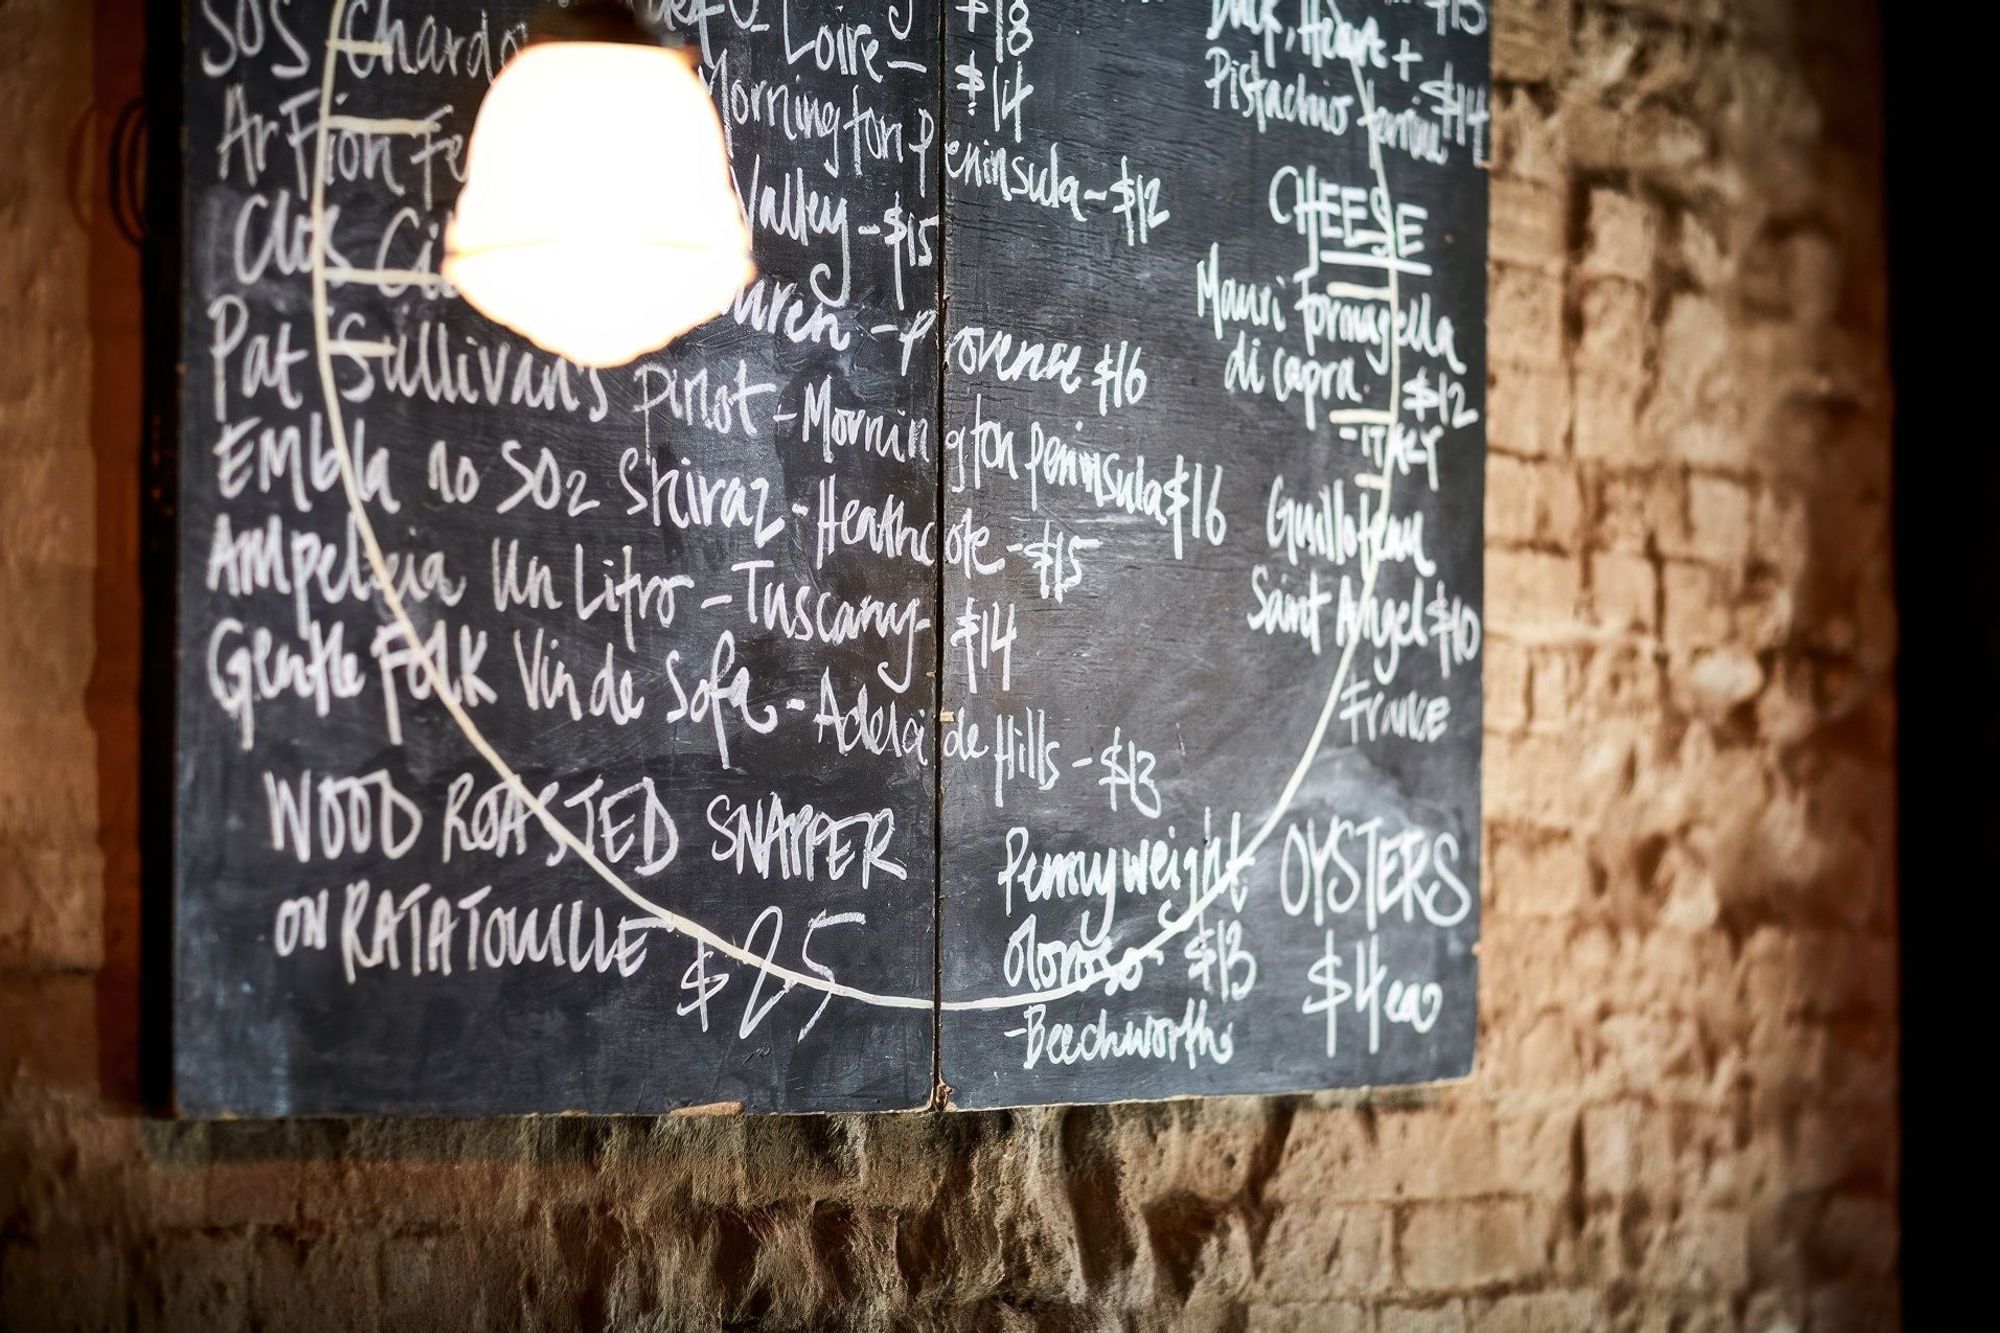 Loire - $18
SOS Chardo Mornington Peninsula - $12
$14
Ar Fion Fe Valley - $15
Clos Ci uren - Provence $16
Pat Sullivan's Pinot - Mornington Peninsula $16
Embla no SO2 Shiraz - Heathcote - $15
Ampeleia Un Litro - Tuscany - $14
Gentle Folk Vin de Sofa - Adelaide Hills - $13
WOOD ROASTED SNAPPER
ON RATATOUILLE $25
Pennyweight
Oloroso $13
- Beechworth
$15
Duck, Heart +
Pistachio terrine $14
CHEESE
Mauri formagella
di capra $12
- ITALY
Guilloteau
Saint Angel $10
France
OYSTERS
$4ea